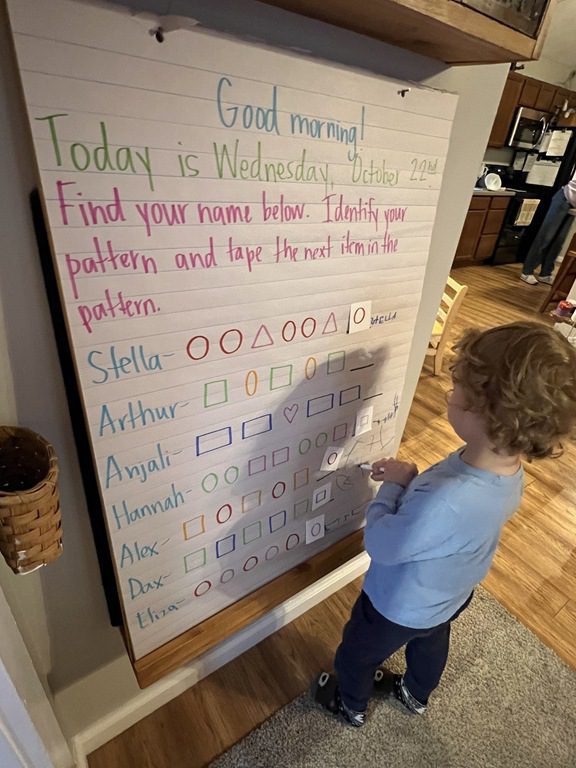 Good morning!
Today is Wednesday, October 22nd
Find your name below. Identify your
pattern and tape the next item in the
pattern.
Stella- STELLA
Arthur-
Anjali-
Hannah-
Alex-
Dax-
Eliza-